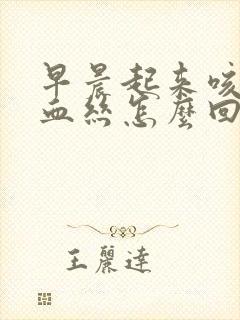 早晨起来咳
血丝怎麼回
王麗達